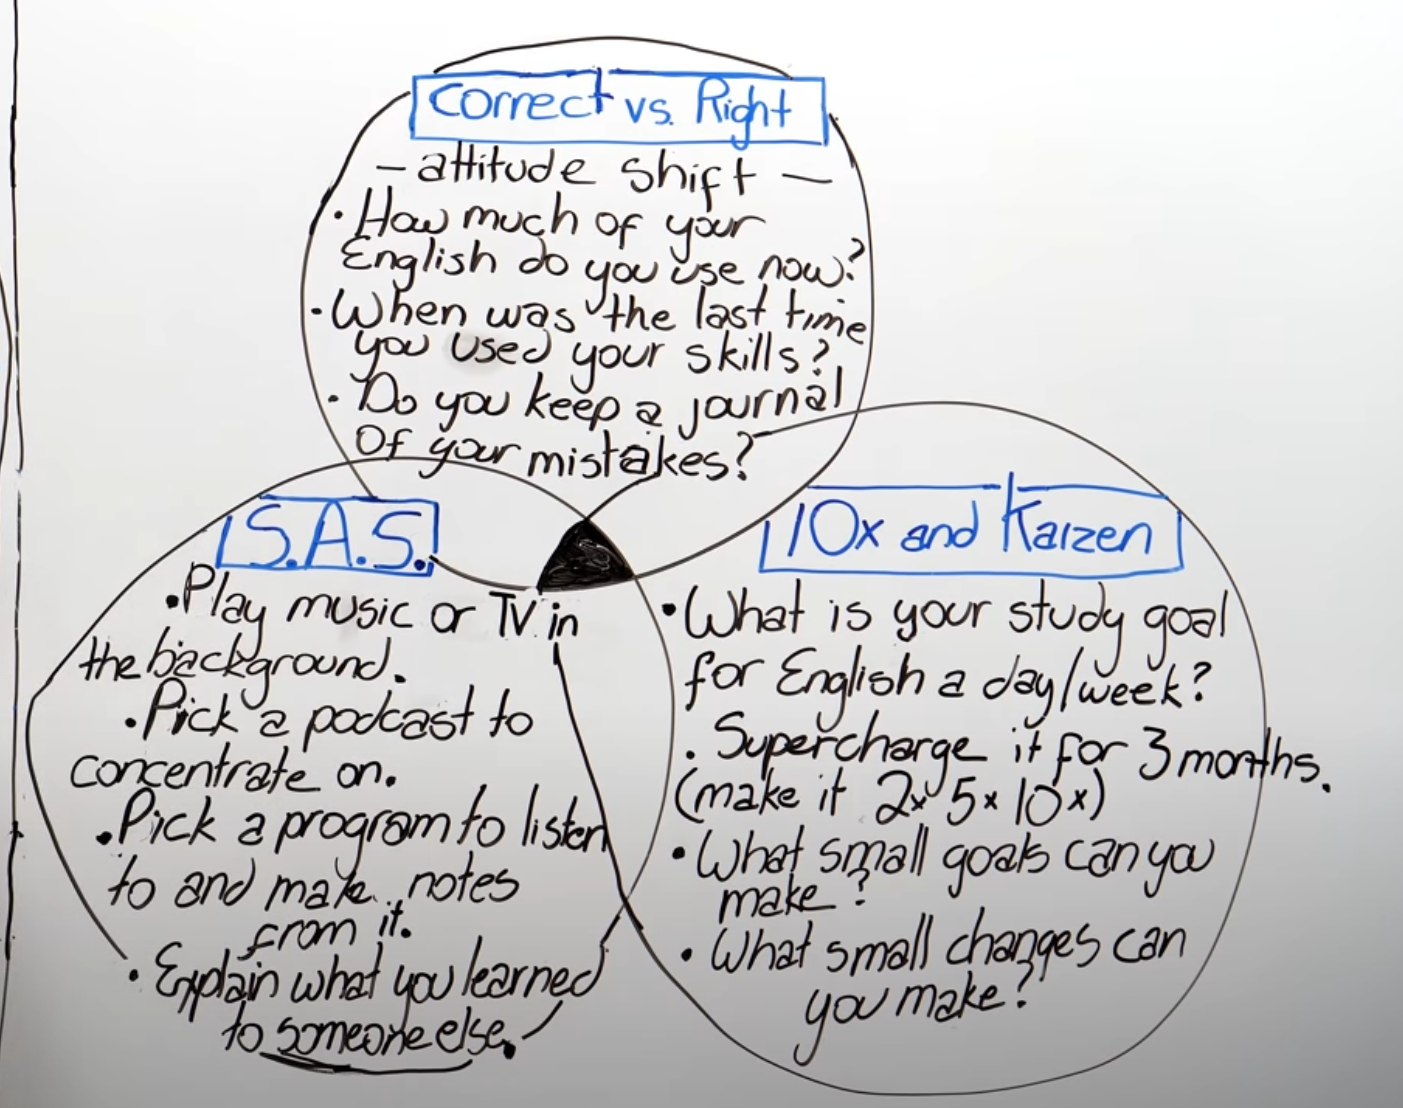 Correct vs. Right
- attitude shift -
• How much of your
English do you use now?
• When was the last time
you used your skills?
• Do you keep a journal
of your mistakes?
S.A.S.
• Play music or TV in
the background.
• Pick a podcast to
concentrate on.
• Pick a program to listen
to and make notes
from it.
• Explain what you learned
to someone else.
10x and Kaizen
• What is your study goal
for English a day/week?
• Supercharge it for 3 months.
(make it 2x 5x 10x)
• What small goals can you
make?
• What small changes can
you make?